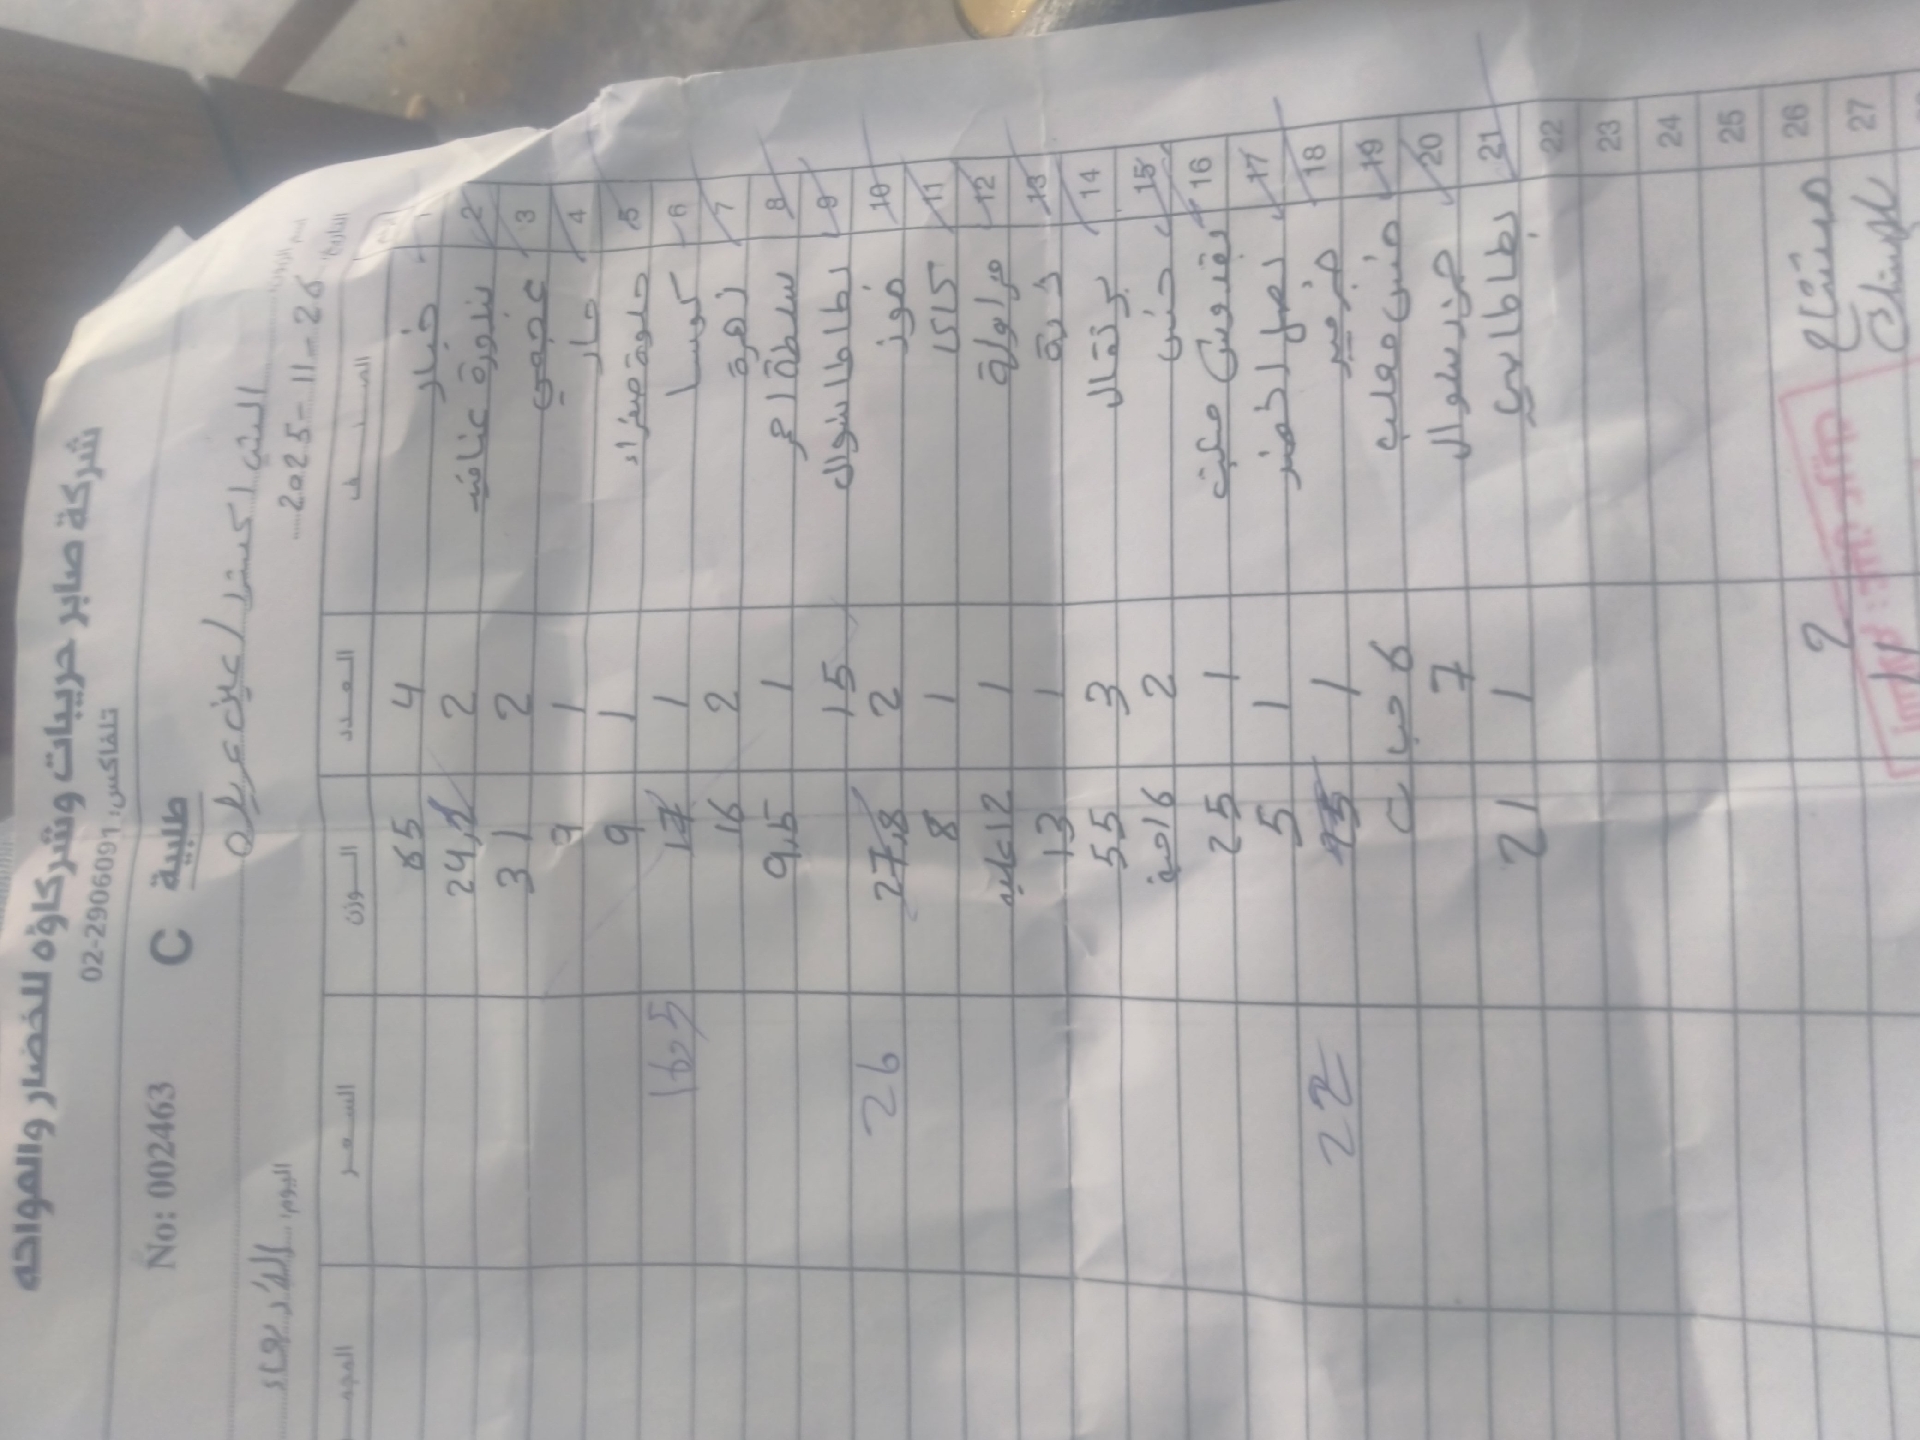 شركة صابر حريبات وشركاؤه للخضار والمواحه
تلفاكس: 02-2906091
No: 0022463 C طلبية
اليوم: الأربعاء التاريخ: 2025-11-26
الرقم الصنف العدد الوزن السعر
1 خيار 4 65
2 بندورة عناقيد 2 24,2
3 عجمي 2 31
4 حار 1 7
5 حلوة صفراء 1 9
6 كوسا 1 17 16,5
7 زهرة 2 16
8 بسلطة احمر 1 9,5
9 بطاطا شوال 15
10 موز 2 27,8 26
11 كاكا 1 8
12 فراولة 1 12 علبه
13 ذرة 1 13
14 برتقال 3 55
15 خس 2 16 حبة
16 بقدونس مكبت 1 25
17 بصل اخضر 1 5
18 1 22
19 خس معلب 6 حبات
20 جزر شوال 7
21 بطاطا بيبي 1 21
22
23
24
25
26 2
27